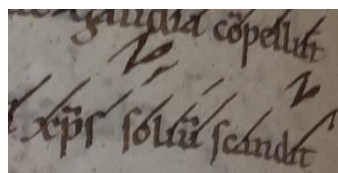 gaudia cōpellūt
xp̄s soliū scandit